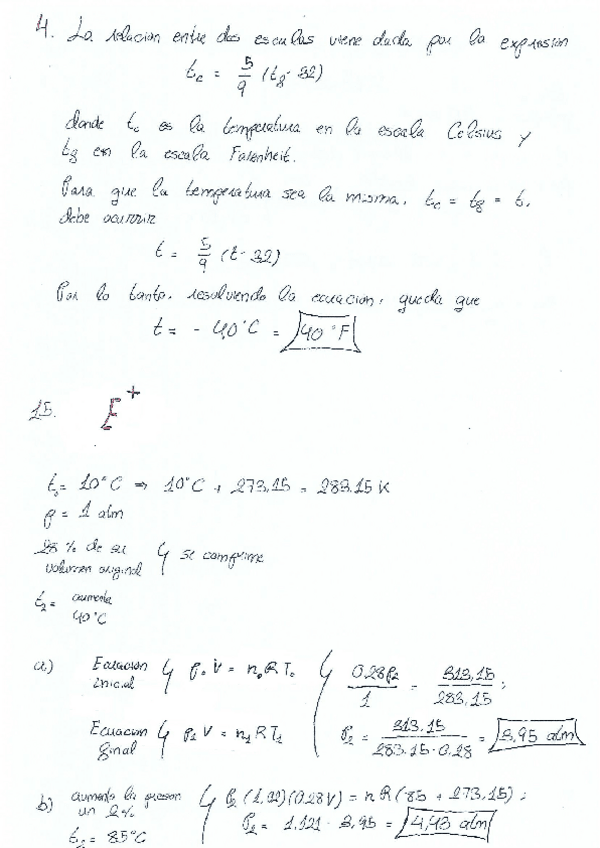 4. La relacion entre dos escalas viene dada por la expresión
t_c = 5/9 (t_f - 32)
donde t_c es la temperatura en la escala Celsius y
t_f en la escala Farenheit.
Para que la temperatura sea la misma, t_c = t_f = t,
debe ocurrir
t = 5/9 (t - 32)
Por lo tanto, resolviendo la ecuacion, queda que
t = - 40°C = 40°F
15. E+
t_0 = 10°C ⇒ 10°C + 273,15 = 283,15 K
p = 1 atm
28 % de su
volumen original ↳ se comprime
t_2 = aumenta
40°C
a) Ecuacion
inicial ↳ p_0 V = n_0 R T_0
Ecuacion
final ↳ p_1 V = n_1 R T_1
0,28p_2/1 = 313,15/283,15 ;
p_2 = 313,15/283.15·0,28 = 3,95 atm
b) aumenta la presion
un 2%
t_2 = 85°C
↳ p_2 (1,02)(0,28V) = nR(85 + 273,15) ;
p_2 = 1,121 · 3,95 = 4,43 atm